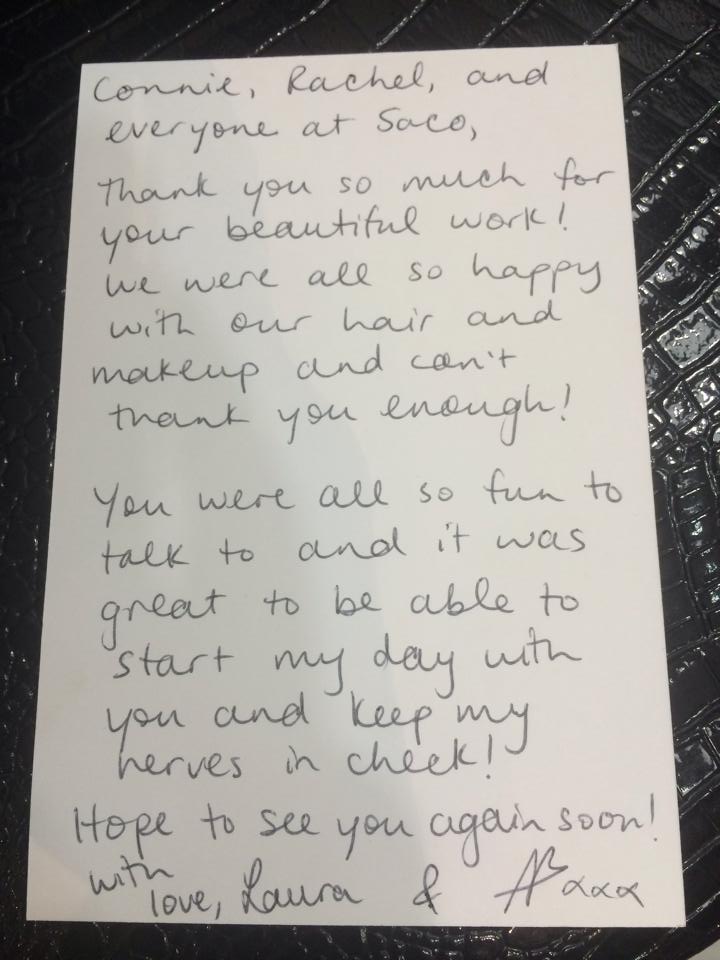 Connie, Rachel, and
everyone at Saco,
Thank you so much for
your beautiful work!
We were all so happy
with our hair and
makeup and can't
thank you enough!
You were all so fun to
talk to and it was
great to be able to
start my day with
you and keep my
nerves in check!
Hope to see you again soon!
with
love, Laura & xxx